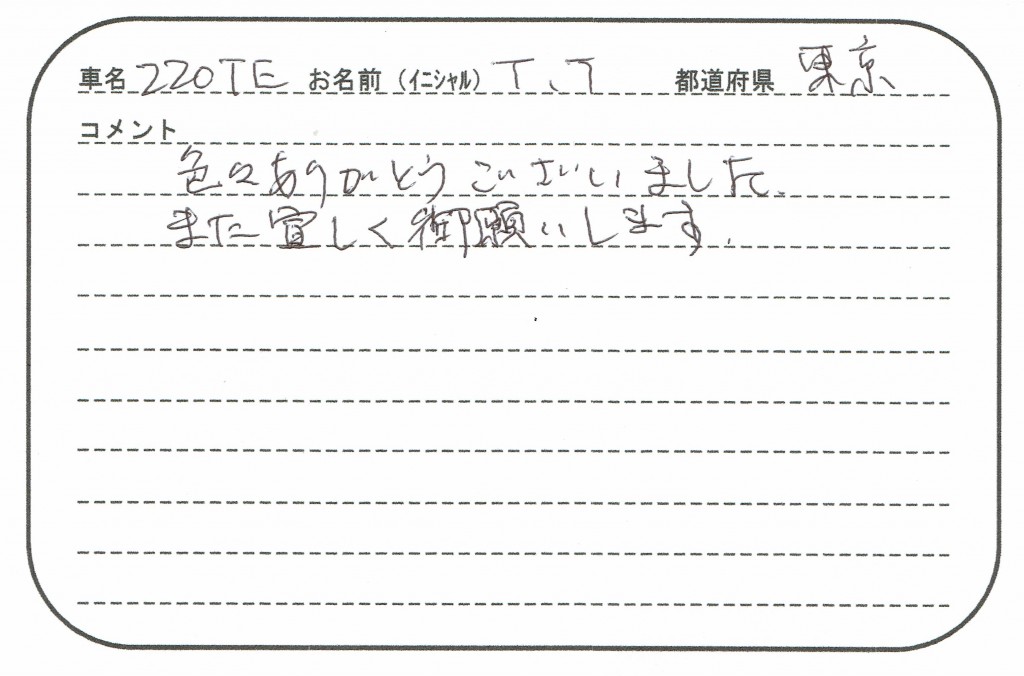 車名 220TE お名前（ｲﾆｼｬﾙ） T.T 都道府県 東京
コメント
色々ありがとうございました.
また宜しく御願いします.